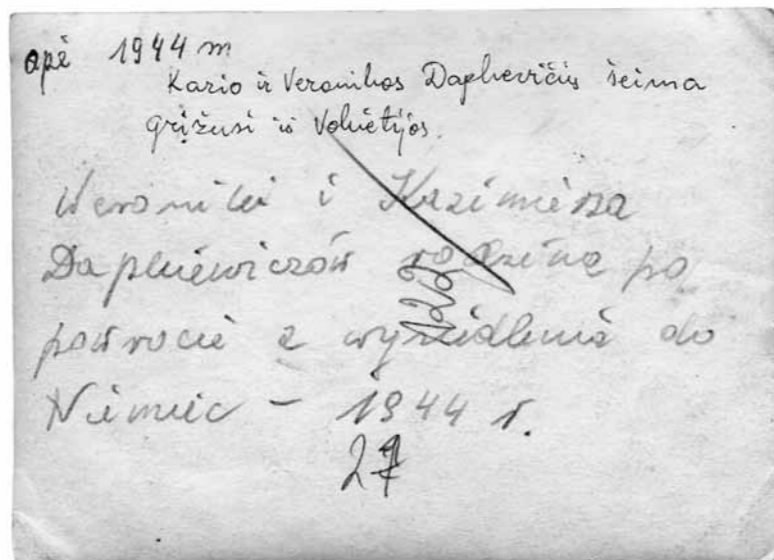 apė 1944 m
Kazio ir Veronikos Dapkevičių šeima
grįžusi iš Vokietijos.
Weroniki i Kazimierza
Dapkiewiczów rodzina po
powrocie z wysiedlenia do
Niemiec - 1944 r.
27